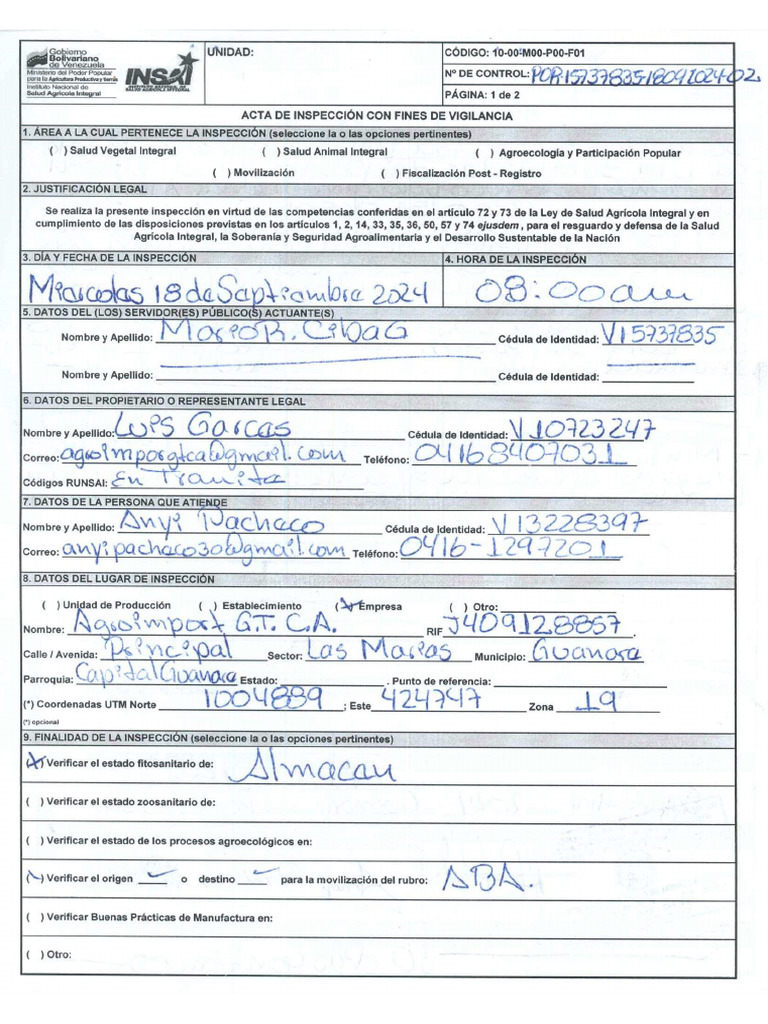 Gobierno Bolivariano de Venezuela
Ministerio del Poder Popular para la Agricultura Productiva y Tierras
Instituto Nacional de Salud Agrícola Integral
INSAI
INSTITUTO NACIONAL DE SALUD AGRÍCOLA INTEGRAL
UNIDAD:
CÓDIGO: 10-00-M00-P00-F01
Nº DE CONTROL: POR.15737835.18092024-02.
PÁGINA: 1 de 2
ACTA DE INSPECCIÓN CON FINES DE VIGILANCIA
1. ÁREA A LA CUAL PERTENECE LA INSPECCIÓN (seleccione la o las opciones pertinentes)
( ) Salud Vegetal Integral ( ) Salud Animal Integral ( ) Agroecología y Participación Popular
( ) Movilización ( ) Fiscalización Post - Registro
2. JUSTIFICACIÓN LEGAL
Se realiza la presente inspección en virtud de las competencias conferidas en el artículo 72 y 73 de la Ley de Salud Agrícola Integral y en
cumplimiento de las disposiciones previstas en los artículos 1, 2, 14, 33, 35, 36, 50, 57 y 74 ejusdem, para el resguardo y defensa de la Salud
Agrícola Integral, la Soberanía y Seguridad Agroalimentaria y el Desarrollo Sustentable de la Nación
3. DÍA Y FECHA DE LA INSPECCIÓN 4. HORA DE LA INSPECCIÓN
Miercoles 18 de Septiembre 2024 08:00am
5. DATOS DEL (LOS) SERVIDOR(ES) PÚBLICO(S) ACTUANTE(S)
Nombre y Apellido: Mario R. Ciba G Cédula de Identidad: V15737835
Nombre y Apellido: Cédula de Identidad:
6. DATOS DEL PROPIETARIO O REPRESENTANTE LEGAL
Nombre y Apellido: Luis Garces Cédula de Identidad: V10723247
Correo: agroimporgtca@gmail.com Teléfono: 04168407031
Códigos RUNSAI: En Tramite
7. DATOS DE LA PERSONA QUE ATIENDE
Nombre y Apellido: Anyi Pacheco Cédula de Identidad: V13228397
Correo: anyipacheco30@gmail.com Teléfono: 0416-1297201
8. DATOS DEL LUGAR DE INSPECCIÓN
( ) Unidad de Producción ( ) Establecimiento (x) Empresa ( ) Otro:
Nombre: Agroimport G.T. C.A. RIF J409128857.
Calle / Avenida: Principal Sector: Las Marias Municipio: Guanare
Parroquia: Capital Guanare Estado: . Punto de referencia:
(*) Coordenadas UTM Norte 1004889 ; Este 424747 Zona 19
(*) opcional
9. FINALIDAD DE LA INSPECCIÓN (seleccione la o las opciones pertinentes)
(x) Verificar el estado fitosanitario de: Almacen
( ) Verificar el estado zoosanitario de:
( ) Verificar el estado de los procesos agroecológicos en:
(✓) Verificar el origen ✓ o destino ✓ para la movilización del rubro: ABA.
( ) Verificar Buenas Prácticas de Manufactura en:
( ) Otro: